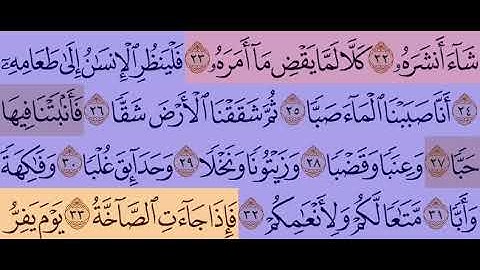 شَآءَ أَنشَرَهُۥ ٢٢ كَلَّا لَمَّا يَقْضِ مَآ أَمَرَهُۥ ٢٣ فَلْيَنظُرِ ٱلْإِنسَٰنُ إِلَىٰ طَعَامِهِۦٓ
٢٤ أَنَّا صَبَبْنَا ٱلْمَآءَ صَبًّا ٢٥ ثُمَّ شَقَقْنَا ٱلْأَرْضَ شَقًّا ٢٦ فَأَنۢبَتْنَا فِيهَا
حَبًّا ٢٧ وَعِنَبًا وَقَضْبًا ٢٨ وَزَيْتُونًا وَنَخْلًا ٢٩ وَحَدَآئِقَ غُلْبًا ٣٠ وَفَٰكِهَةً
وَأَبًّا ٣١ مَّتَٰعًا لَّكُمْ وَلِأَنْعَٰمِكُمْ ٣٢ فَإِذَا جَآءَتِ ٱلصَّآخَّةُ ٣٣ يَوْمَ يَفِرُّ